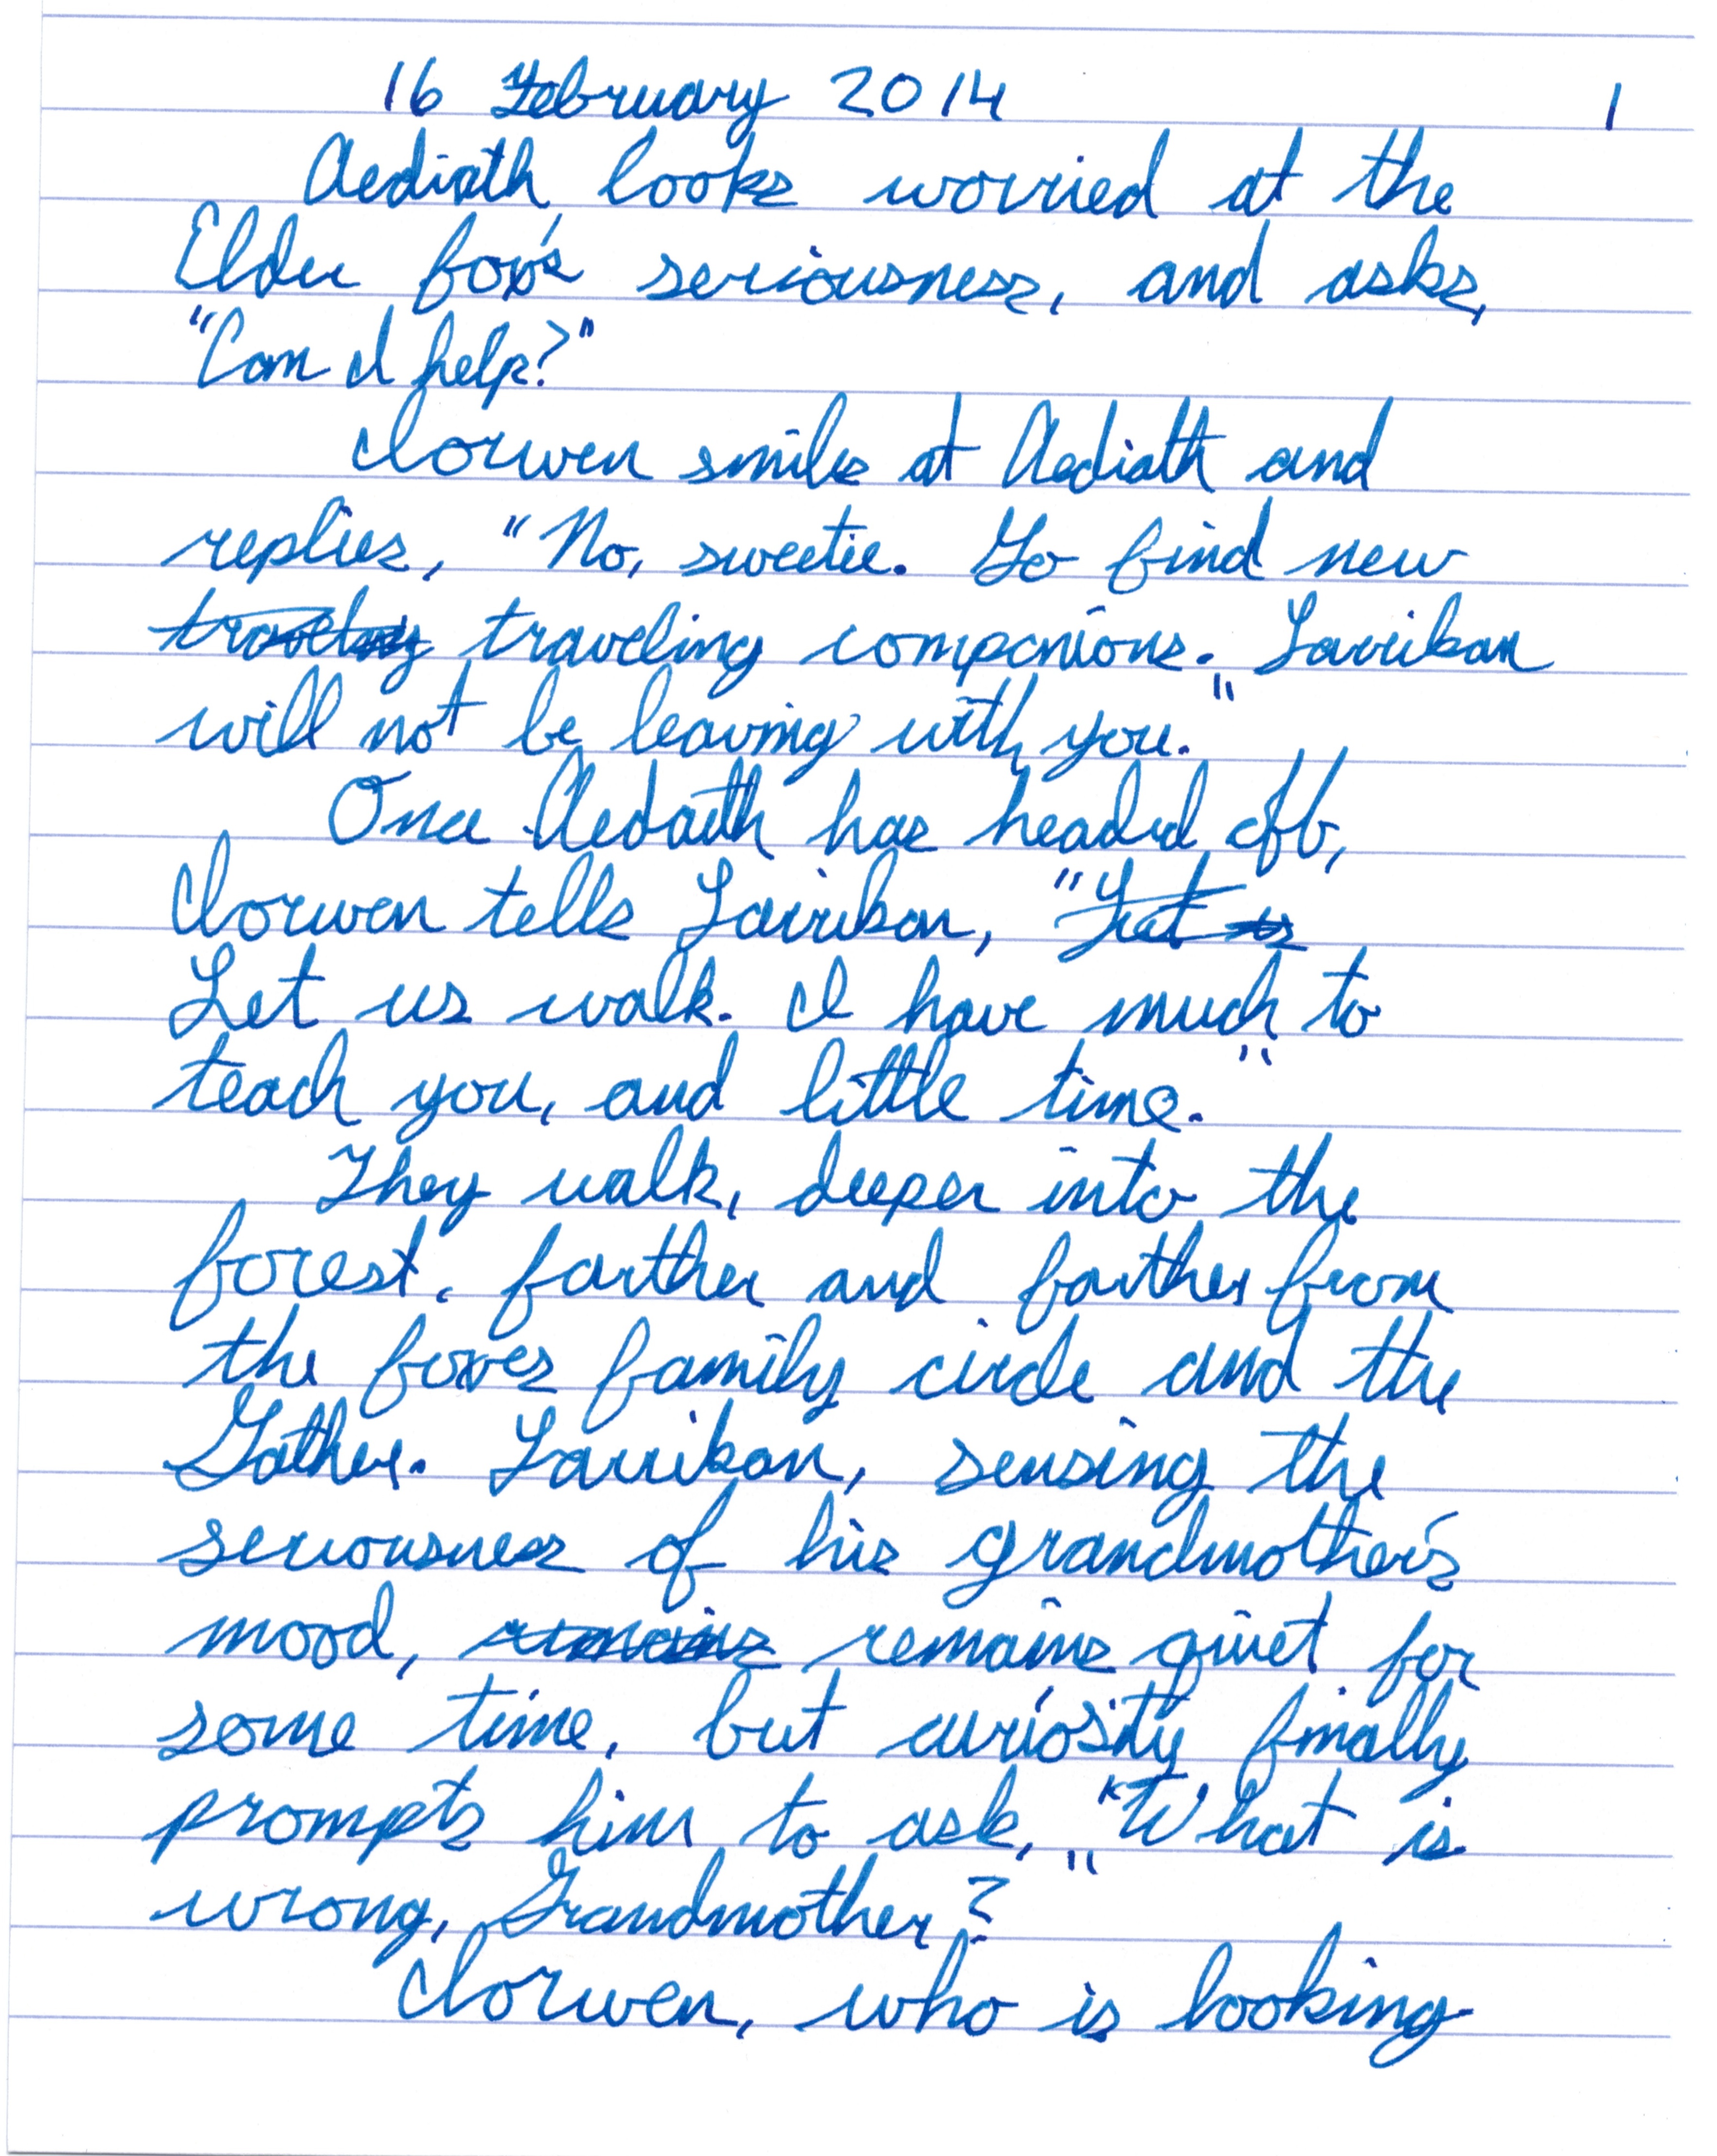 16 February 2014 1
Aediath looks worried at the
Elder fox's seriousness, and asks,
"Can I help?"
Iorwen smiles at Aediath and
replies, "No, sweetie. Go find new
traveling companions. Laurikan
will not be leaving with you."
Once Aediath has headed off,
Iorwen tells Laurikan, "
Let us walk. I have much to
teach you, and little time."
They walk, deeper into the
forest, farther and farther from
the foxes family circle and the
Gather. Laurikan, sensing the
seriousness of his grandmother's
mood, remains quiet for
some time, but curiosity finally
prompts him to ask, "What is
wrong, Grandmother?"
Iorwen, who is looking